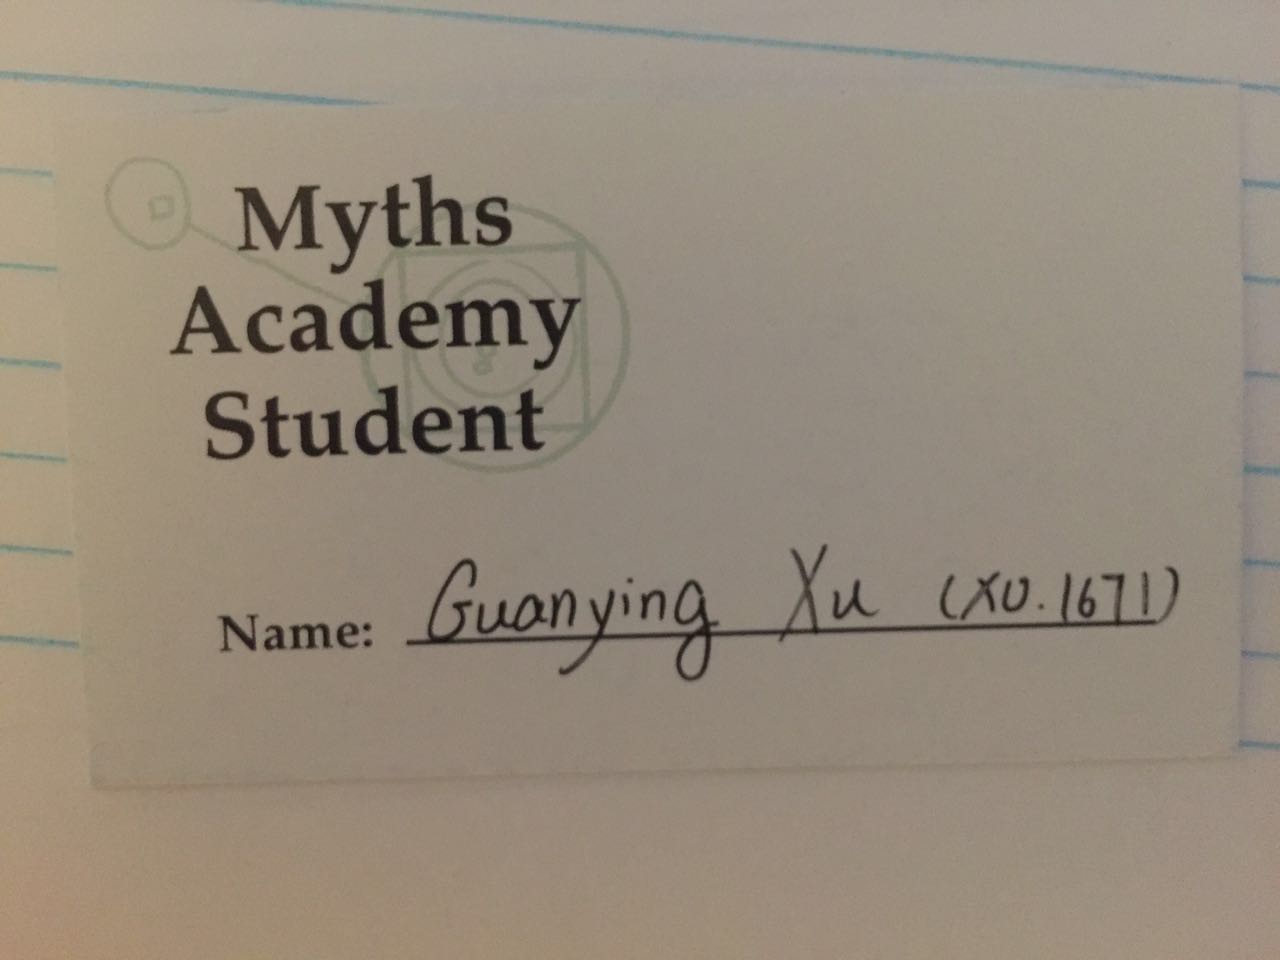 Myths
Academy
Student
Name: Guanying Xu (XU.1671)